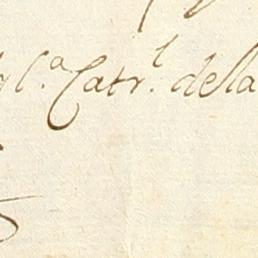 gl.ª Catr.l dela